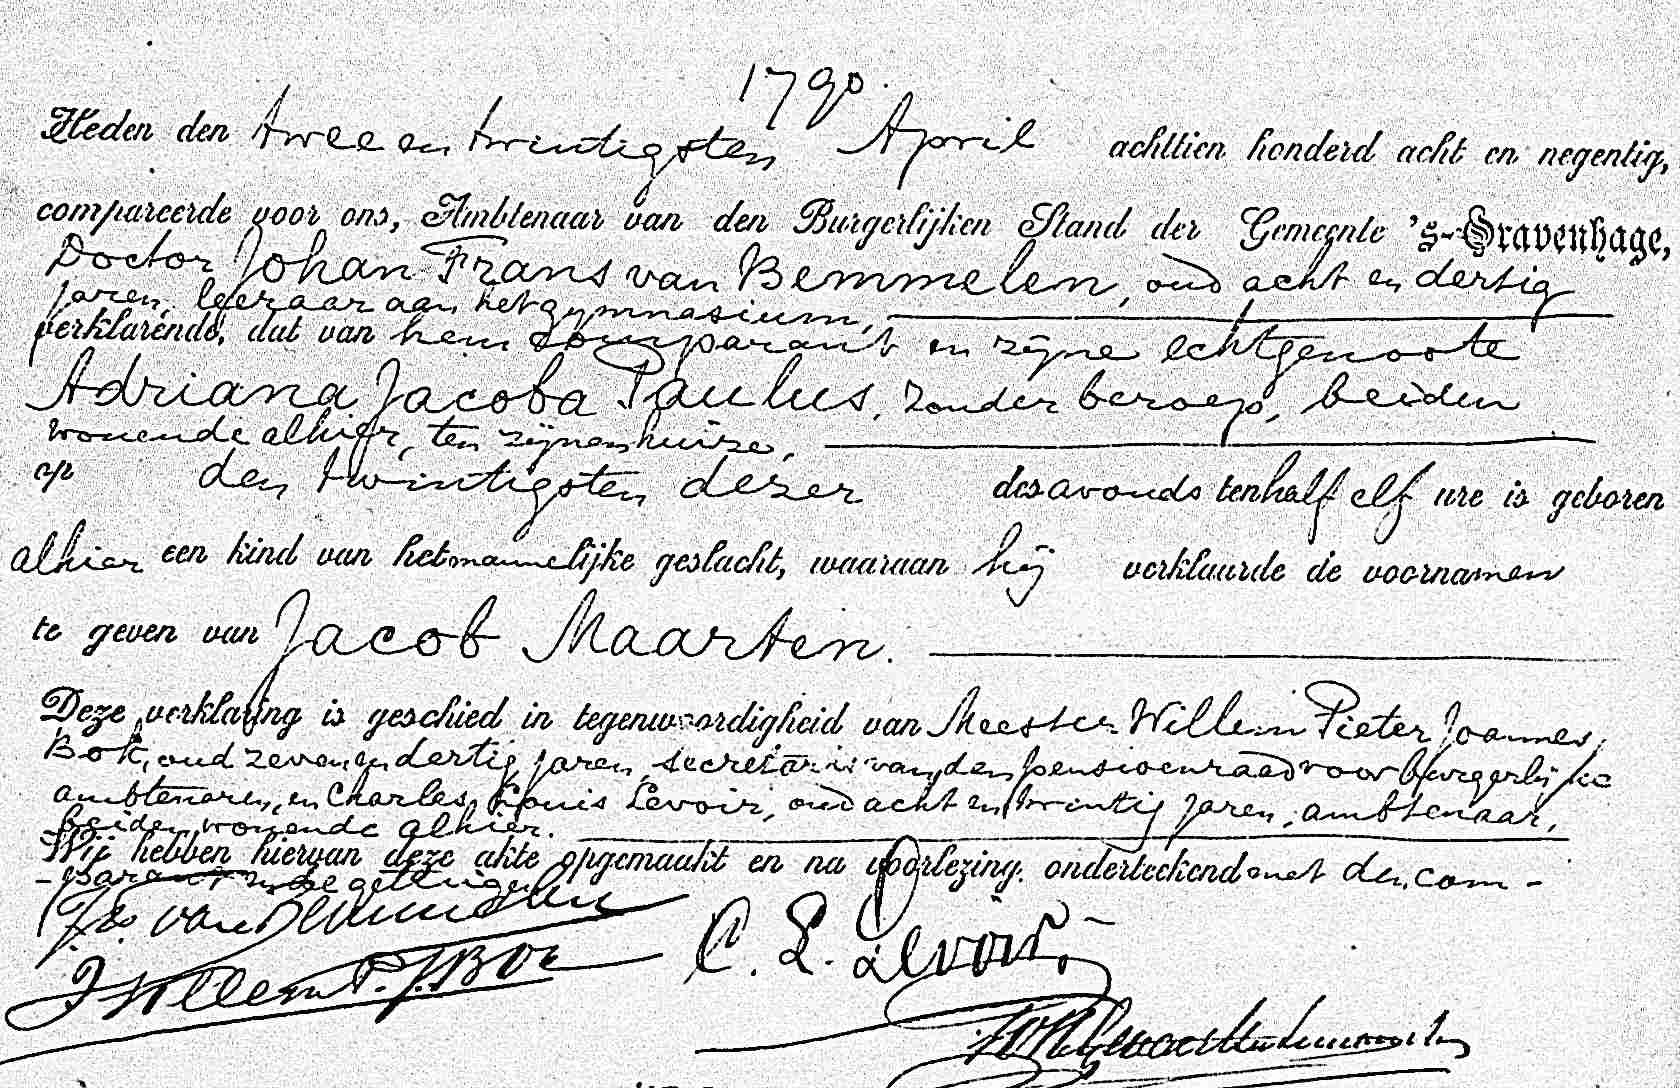 1790.
Heden den twee en twintigsten April achttien honderd acht en negentig,
compareerde voor ons, Ambtenaar van den Burgerlijken Stand der Gemeente 's-Gravenhage,
Doctor Johan Frans van Bemmelen, oud acht en dertig
jaren, leeraar aan het gymnasium,
verklarende, dat van hem comparant en zijne echtgenoote
Adriana Jacoba Paulus, zonder beroep, beiden
wonende alhier, ten zijnen huize,
op den twintigsten dezer des avonds ten half elf ure is geboren
alhier een kind van het mannelijke geslacht, waaraan hij verklaarde de voornamen
te geven van Jacob Maarten.
Deze verklaring is geschied in tegenwoordigheid van Meester Willem Pieter Joannes
Bok, oud zeven en dertig jaren, secretaris van den pensioenraad voor burgerlijke
ambtenaren, en Charles Louis Levoir, oud acht en twintig jaren, ambtenaar,
beiden wonende alhier.
Wij hebben hiervan deze akte opgemaakt en na voorlezing onderteekend met den com-
-parant en de getuigen
J.F. van Bemmelen
C. L. Levoir,
Willem P. J. Bok